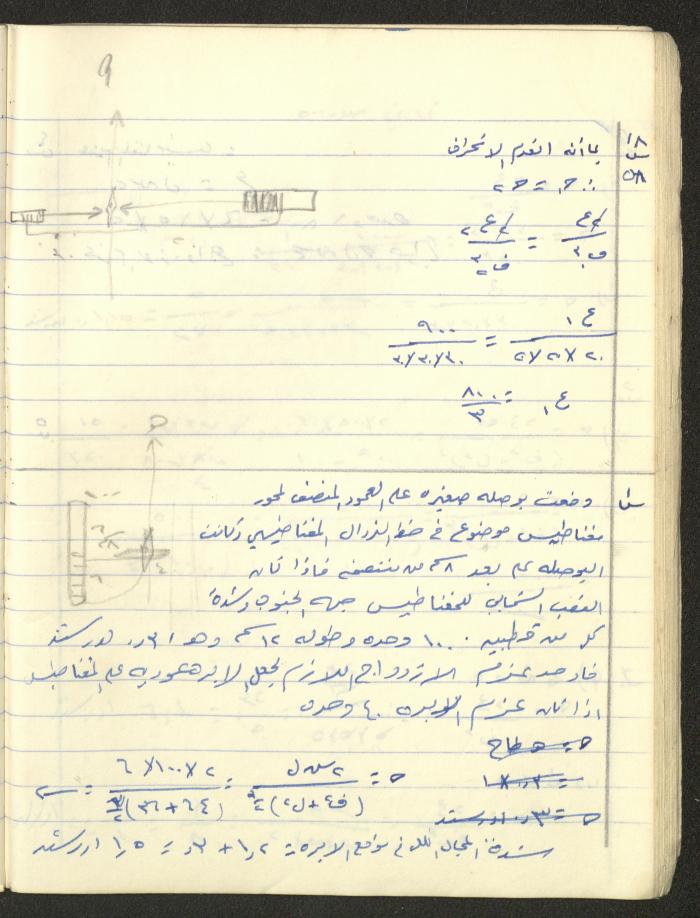 م
١٨
س
٥٨
بما أنه انعدم الانحراف
∴ ح١ = ح٢
ع١ / ف٣ = ع٢ / ف٣
ع١ / ٢٠×٢٠×٢٠ = ٩٠٠ / ٣٠×٣٠×٣٠
ع١ = ٨٠٠ / ٣
س
وضعت بوصله صغيره على العمود المنصف لمحور
مغناطيس موضوع في خط الزوال المغناطيسي وكانت
البوصله على بعد ٨ سم من منتصفه فاذا كان
القطب الشمالي للمغناطيس جهة الجنوب وشدة
كل من قطبيه ١٠٠ وحده وطوله ١٢ سم
فاوجد عزم الازدواج اللازم لجعل الابره عموديه على المغناطيس
اذا كان عزم الابره ٤٠ وحده
ح = ٢ س ل / (ف٢ + ل٢)^٣/٢ = ٢×١٠٠×٦ / (٦٤+٣٦)^٣/٢ =
شدة المجال الكلي في موقع الابره = ١٫٢ + ٣٫ = ١٫٥ اورستد